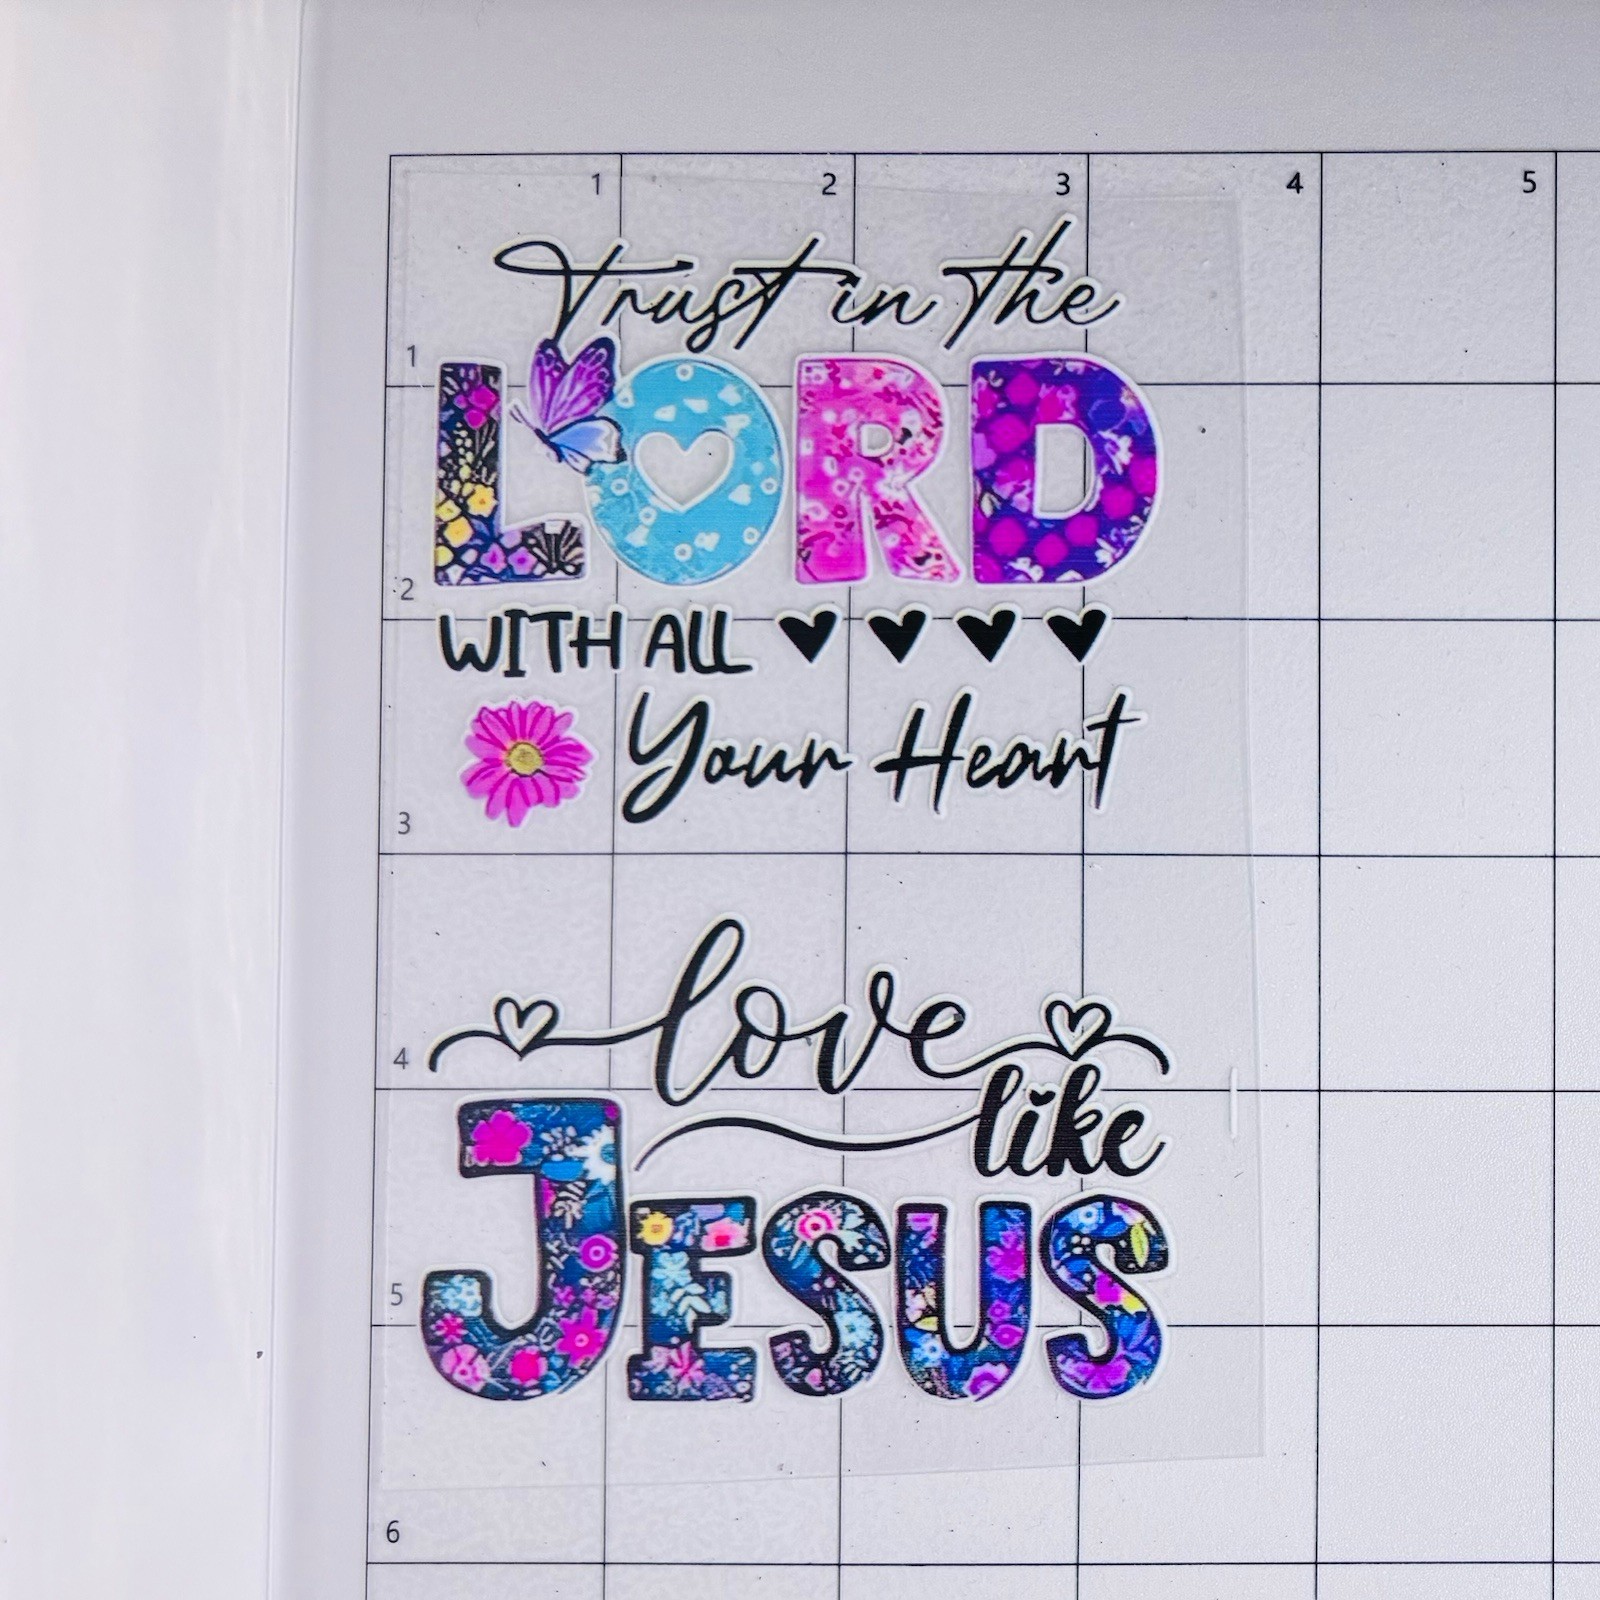 1 2 3 4 5
Trust in the
1
LORD
2
WITH ALL
Your Heart
3
love
4
like
JESUS
5
6